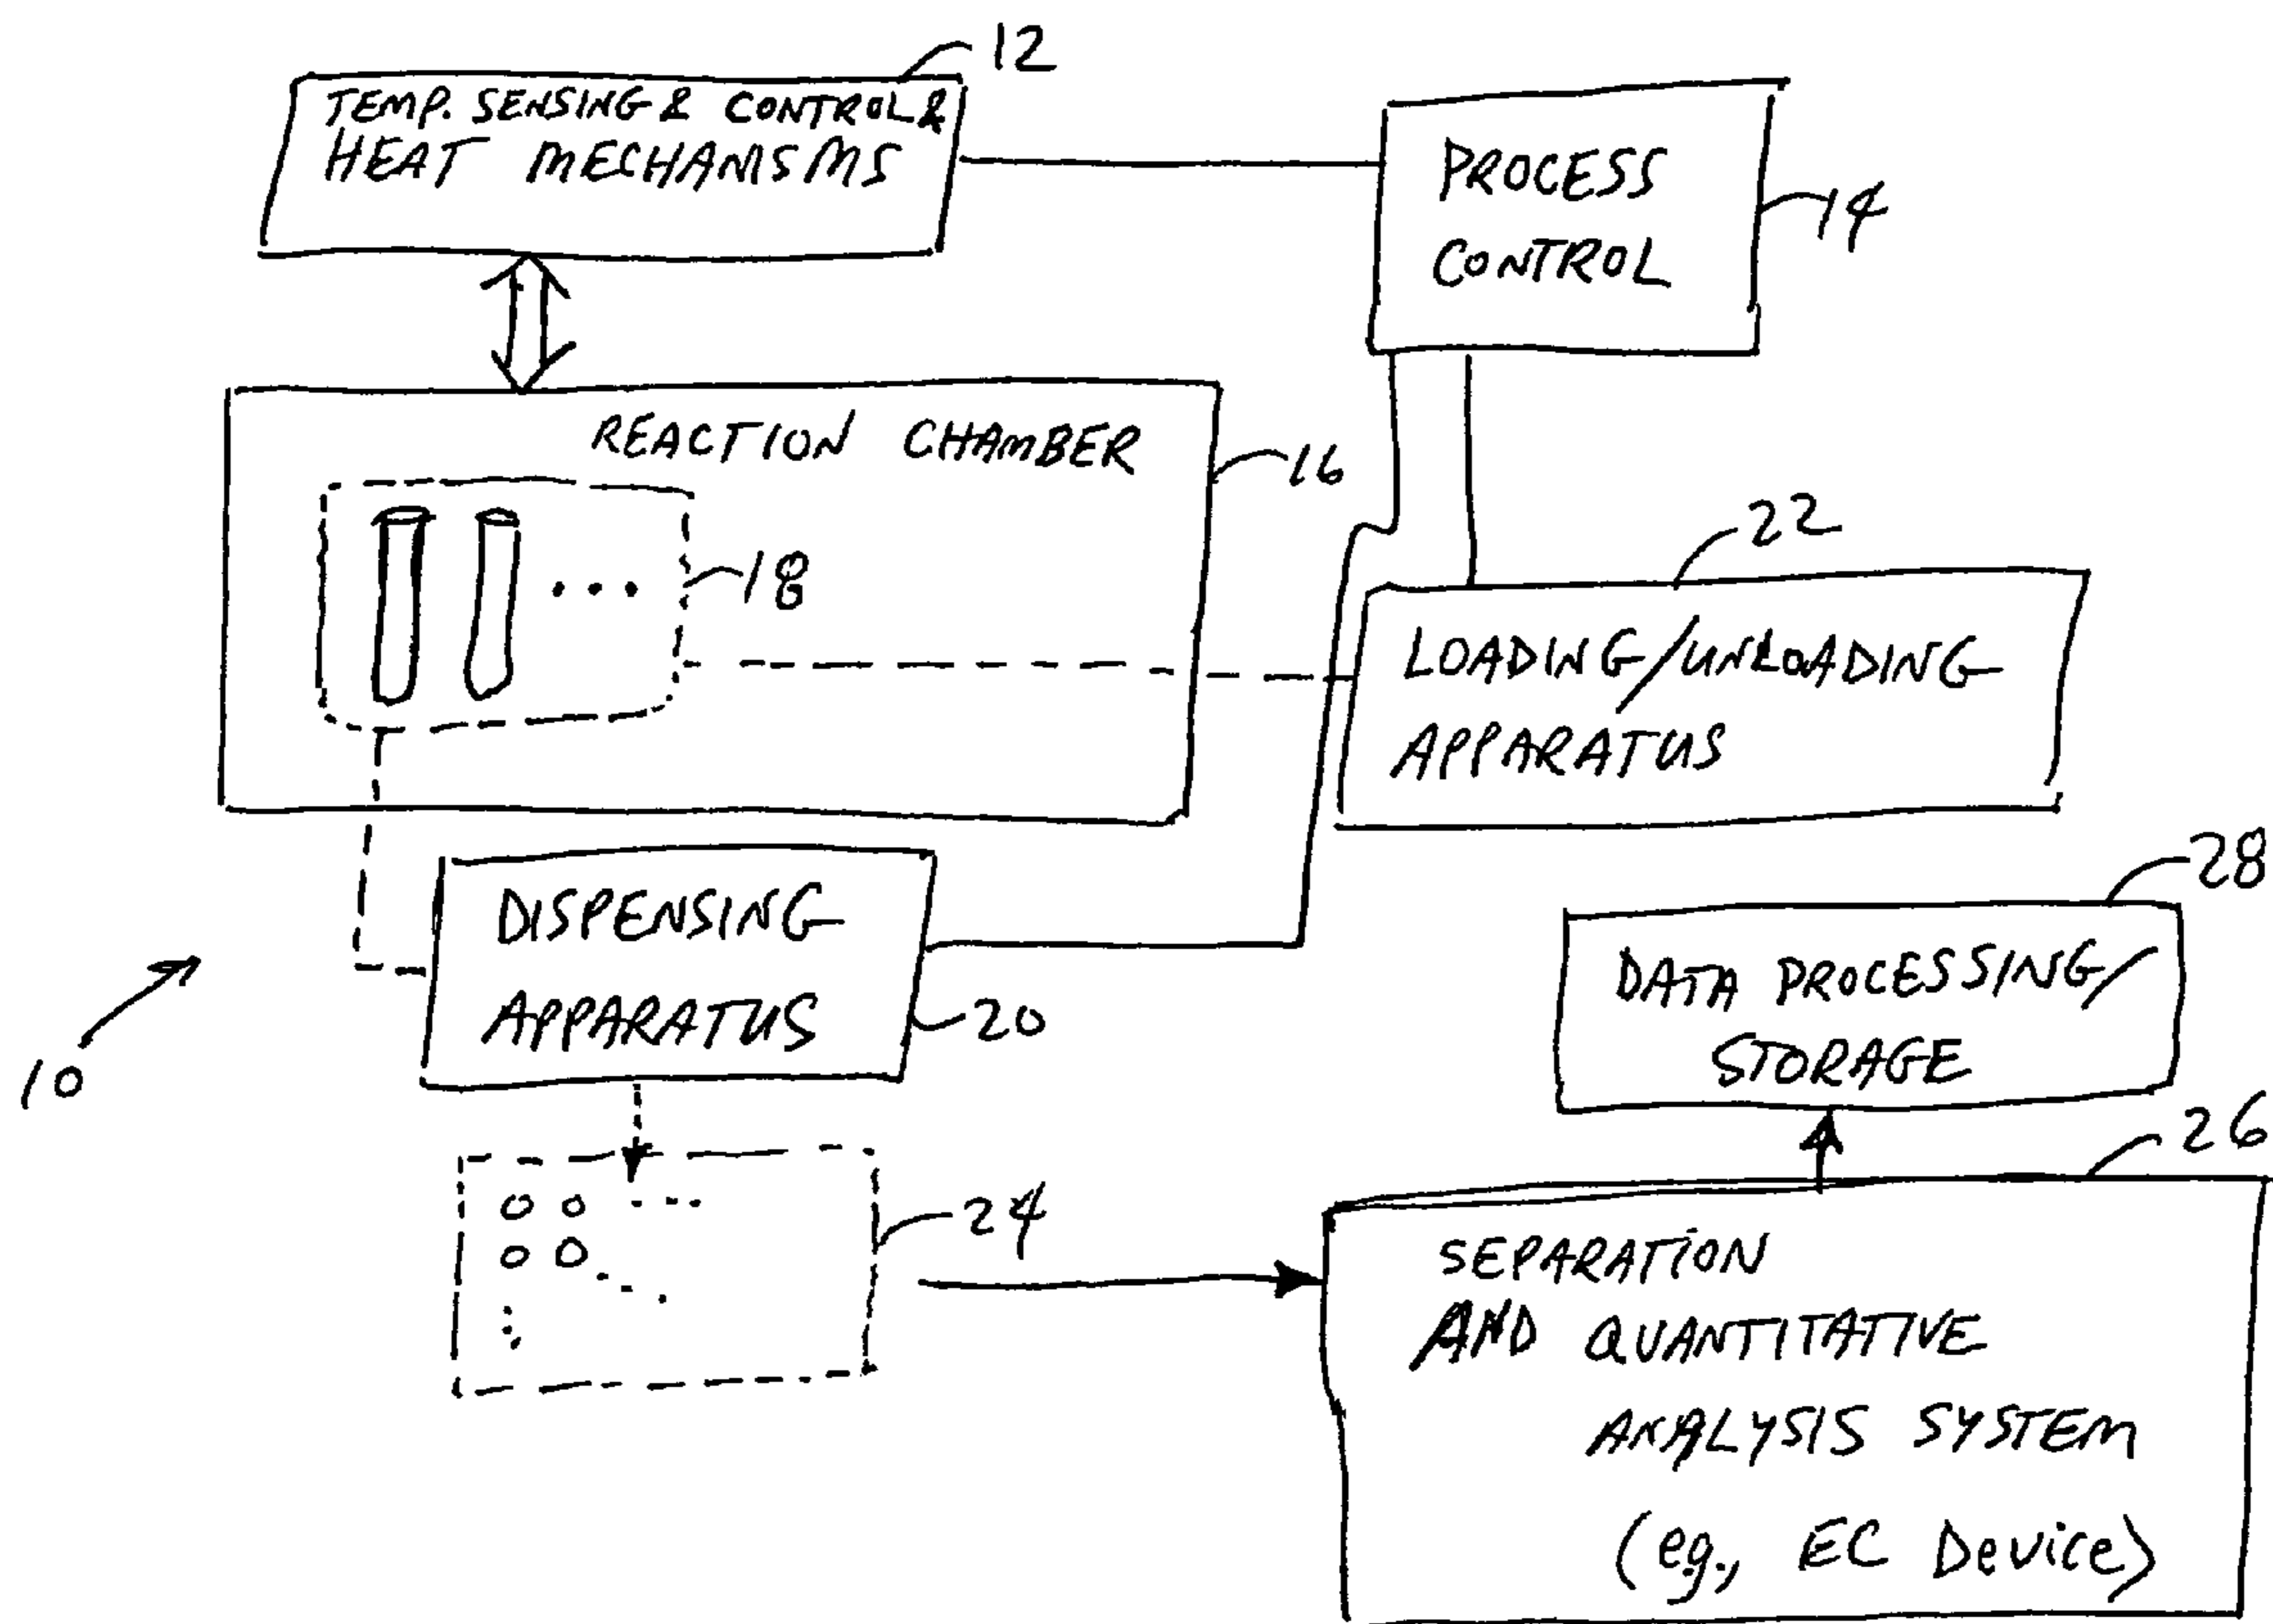 12
TEMP. SENSING & CONTROL &
HEAT MECHANISMS
PROCESS
CONTROL
14
REACTION CHAMBER
16
18
22
LOADING/UNLOADING
APPARATUS
DISPENSING
APPARATUS
20
10
28
DATA PROCESSING/
STORAGE
26
24
SEPARATION
AND QUANTITATIVE
ANALYSIS SYSTEM
(eg., EC Device)